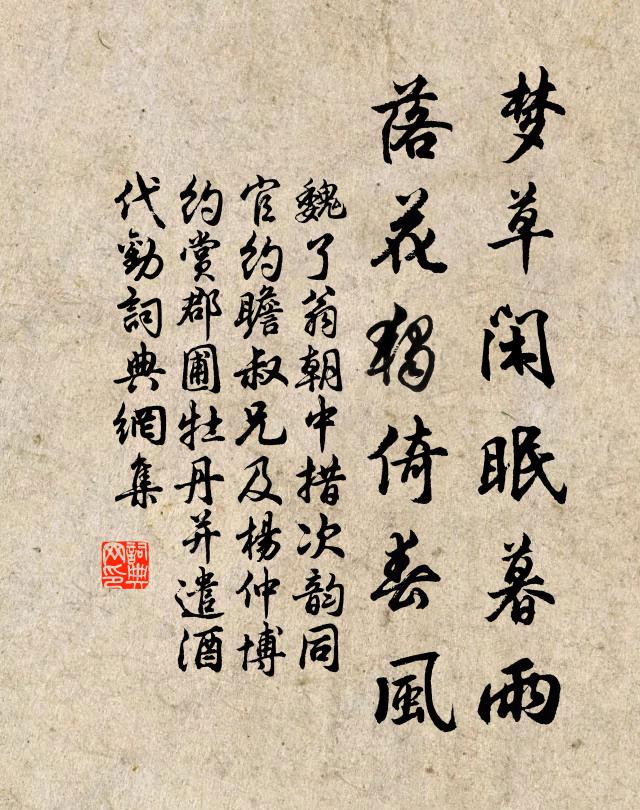 梦草闲眠暮雨
落花独倚春風
魏了翁朝中措次韵同
官約瞻叔兄及楊仲博
約賞郡圃牡丹并遣酒
代勸詞典網集
詞典
网印